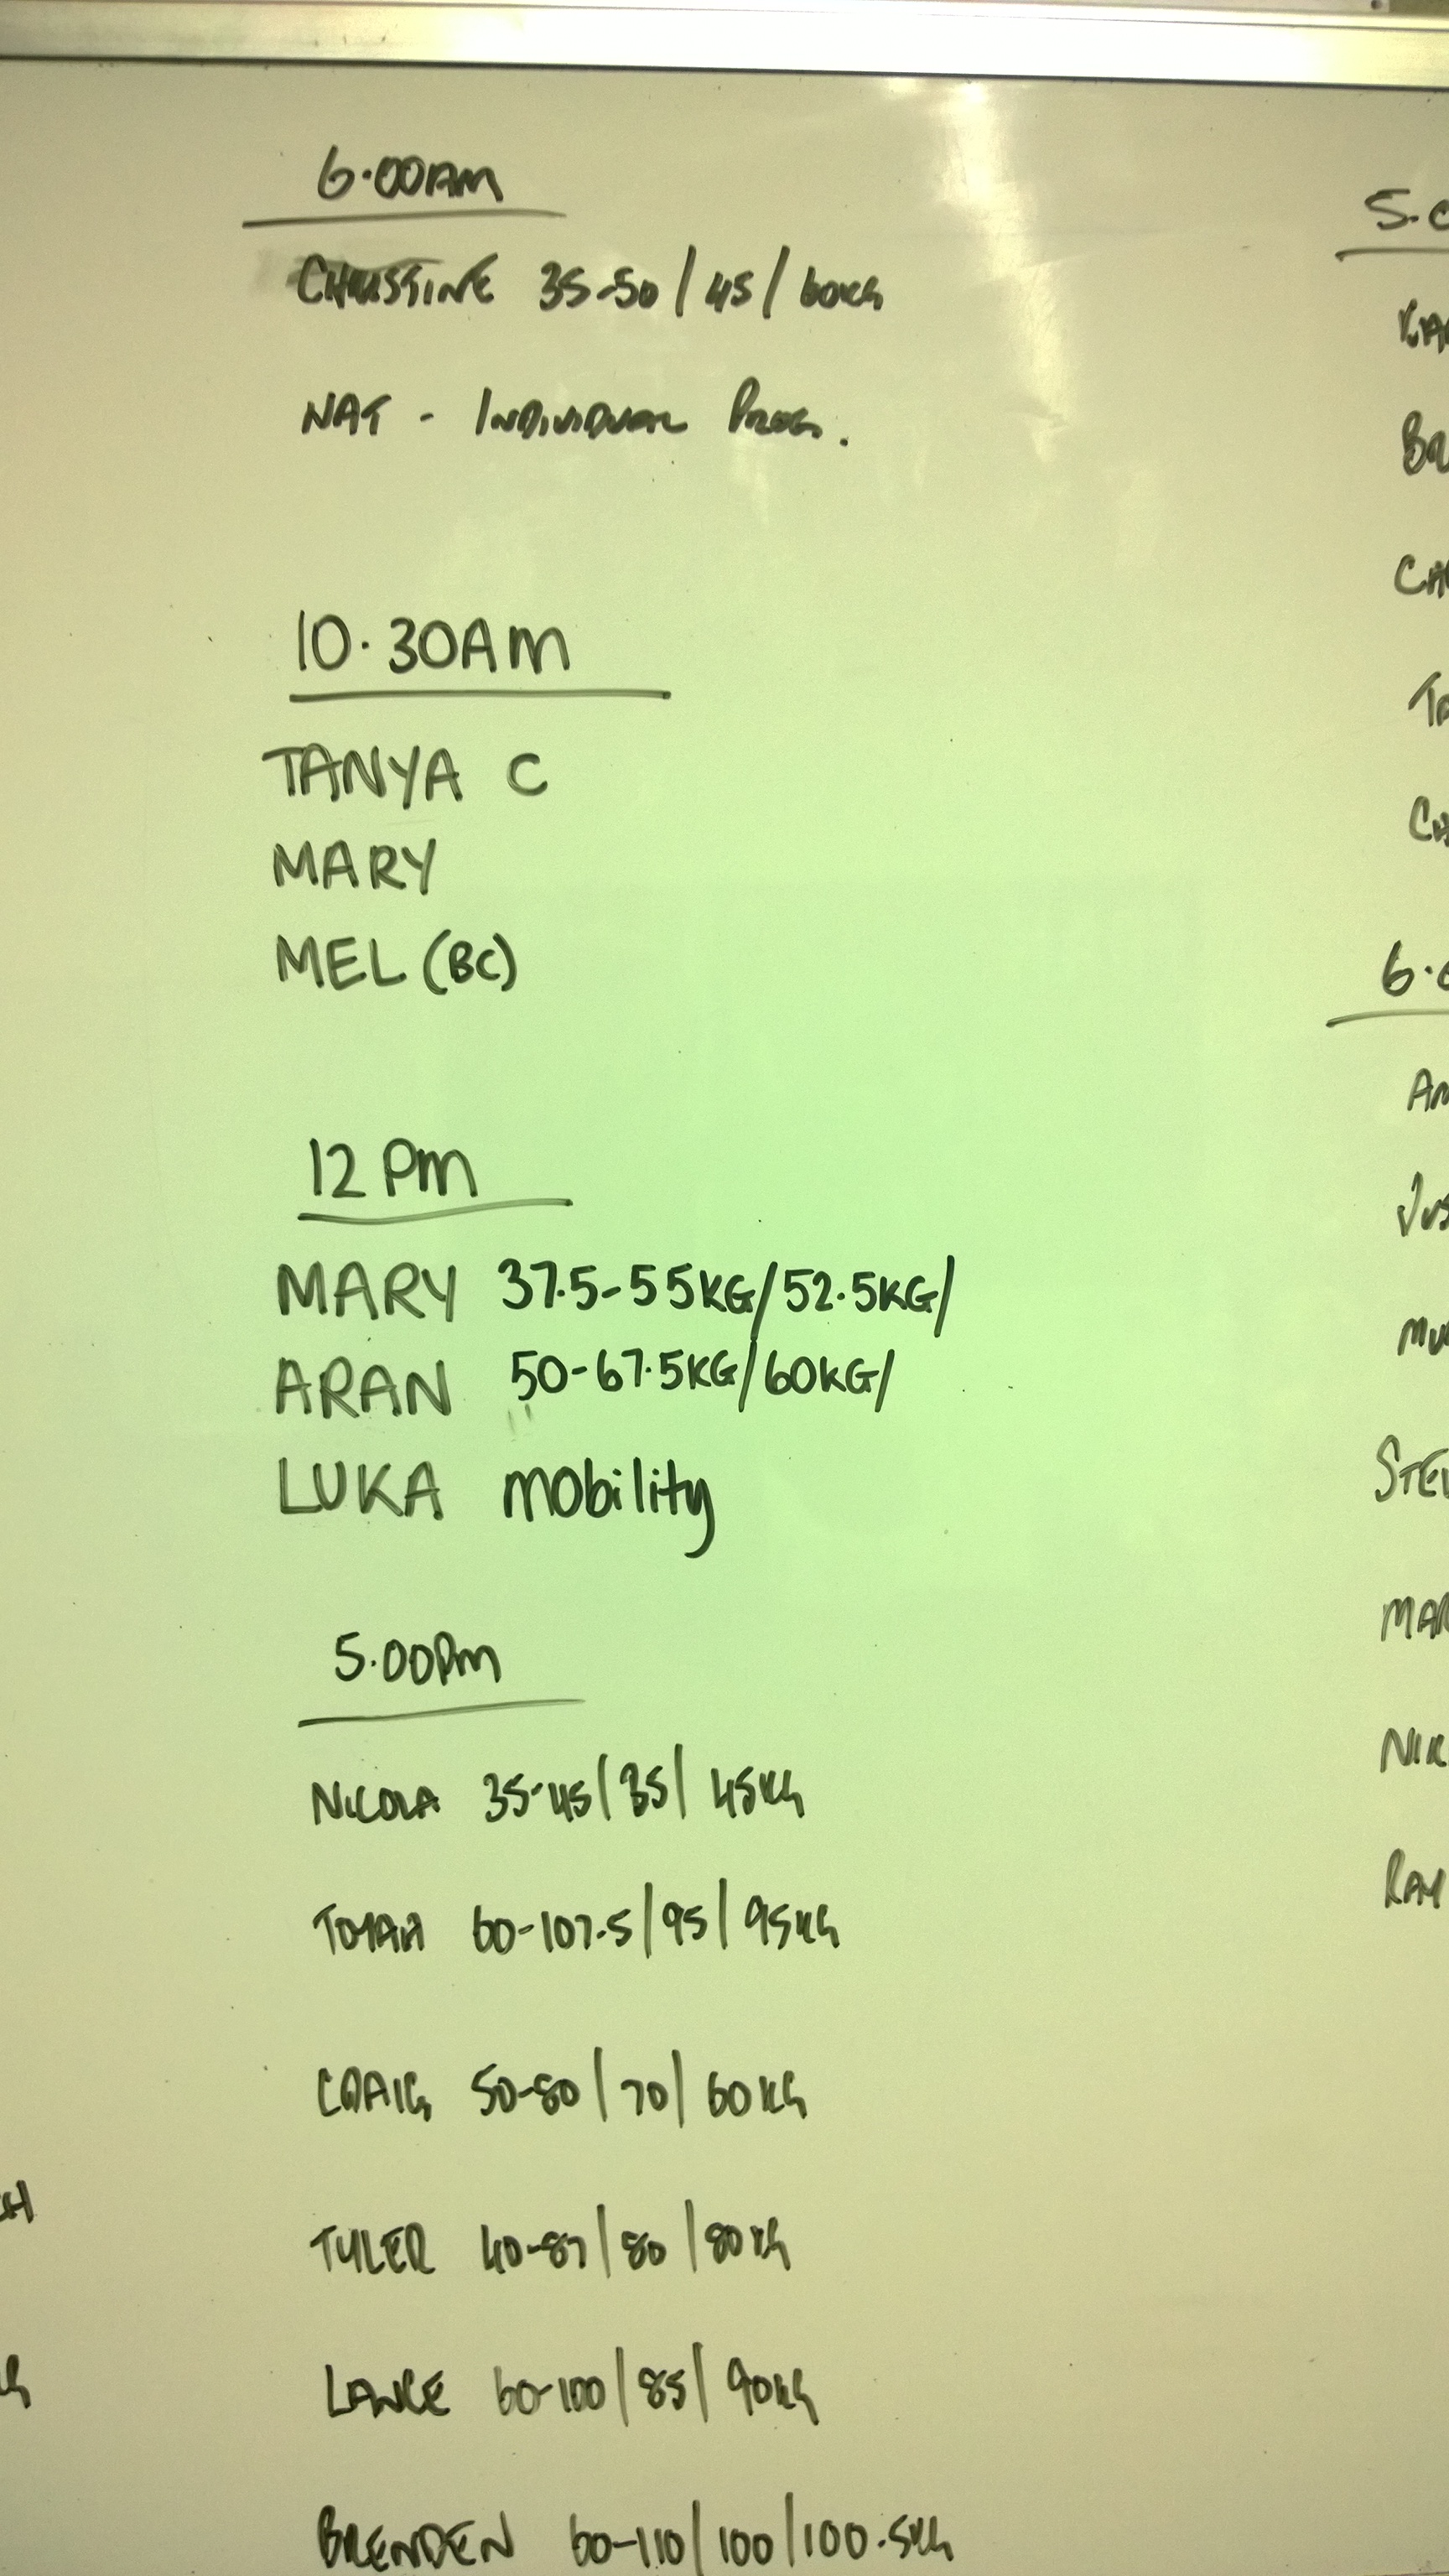 6.00AM
CHRISTINE 35-50/45/60KG
NAT - INDIVIDUAL PROG.
10.30AM
TANYA C
MARY
MEL (BC)
12 PM
MARY 37.5-55KG/52.5KG/
ARAN 50-67.5KG/60KG/
LUKA mobility
5.00PM
NICOLA 35-45/35/45KG
60-107.5/95/95KG
CRAIG 50-80/70/60KG
TYLER 40-87/80/80KG
LANCE 60-100/85/90KG
BRENDEN 60-110/100/100.5KG
5.
BR
6.
JUS
STE
MAR
NIK
RAY